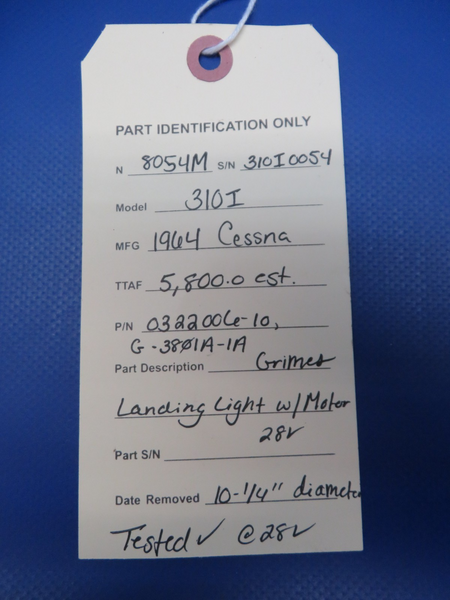 PART IDENTIFICATION ONLY
N 8054M S/N 310I0054
Model 310I
MFG 1964 Cessna
TTAF 5,800.0 est.
P/N 0322006-10,
G-3801A-1A
Part Description Grimes
Landing Light w/Motor
28V
Part S/N
Date Removed 10-1/4" diameter
Tested ✓ @28V